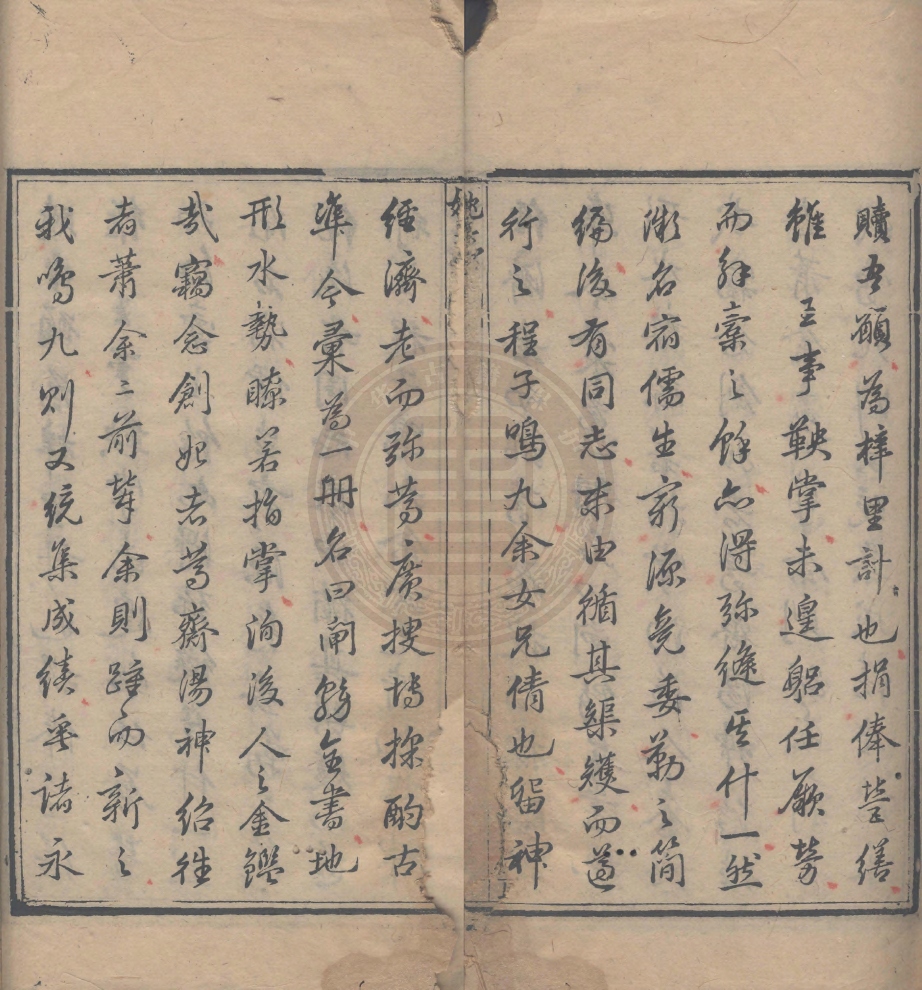 贖吾願為梓里計也捐俸營繕
雖王事鞅掌未遑躬任厥勞
而解橐之餘亦得弥縫其什一然
微名宿儒生窮源竟委勒之簡
编後有同志末由循其榘矱而遵
行之程子鳴九余女兄倩也留神
经濟老而弥篤廣搜博採酌古
準今彙為一册名曰閘務全書地
形水勢瞭若指掌洵後人之金鑑
哉竊念創始者篤齋湯神绍徃
者蕭余二前輩余則踵而新之
我鳴九則又统集成績垂諸永